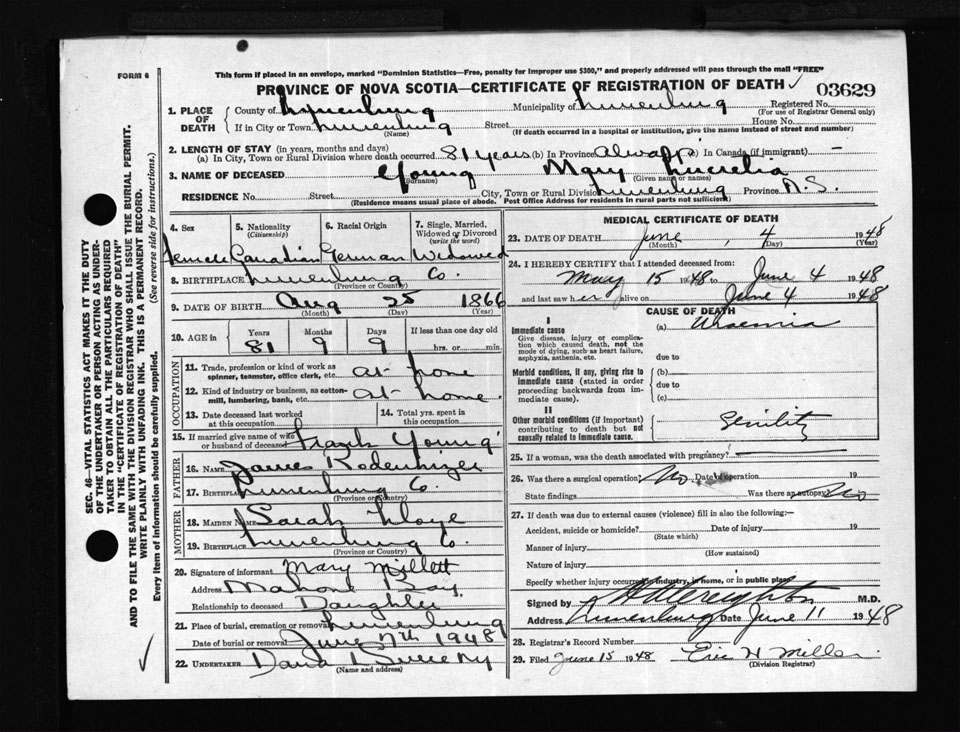 FORM 6
This form if placed in an envelope, marked "Dominion Statistics—Free, penalty for improper use $300," and properly addressed will pass through the mail "FREE"
PROVINCE OF NOVA SCOTIA—CERTIFICATE OF REGISTRATION OF DEATH ✓ 03629
1. PLACE OF DEATH { County of Lunenburg Municipality of Lunenburg Registered No.
(For use of Registrar General only)
If in City or Town Lunenburg Street House No.
(Name) (If death occurred in a hospital or institution, give the name instead of street and number)
2. LENGTH OF STAY (in years, months and days)
(a) In City, Town or Rural Division where death occurred 81 years (b) In Province always (c) In Canada (if immigrant) —
3. NAME OF DECEASED Young Mary Lucretia
(Surname) (Given name or names)
RESIDENCE No. Street City, Town or Rural Division Lunenburg Province N.S.
(Residence means usual place of abode. Post Office Address for residents in rural parts not sufficient)
4. Sex 5. Nationality (Citizenship) 6. Racial Origin 7. Single, Married, Widowed or Divorced (write the word)
Female Canadian German Widowed
8. BIRTHPLACE Lunenburg Co.
(Province or Country)
9. DATE OF BIRTH Aug 25 1866
(Month) (Day) (Year)
10. AGE in { Years Months Days If less than one day old
81 9 9 hrs. or min.
OCCUPATION
11. Trade, profession or kind of work as spinner, teamster, office clerk, etc. at home
12. Kind of industry or business, as cotton-mill, lumbering, bank, etc. at home
13. Date deceased last worked at this occupation 14. Total yrs. spent in this occupation
15. If married give name of wife or husband of deceased Frank Young
FATHER
16. NAME James Rodenhizer
17. BIRTHPLACE Lunenburg Co.
(Province or Country)
MOTHER
18. MAIDEN NAME Sarah
19. BIRTHPLACE Lunenburg Co.
(Province or Country)
20. Signature of informant Mary Millett
Address Mahone Bay
Relationship to deceased Daughter
21. Place of burial, cremation or removal Lunenburg
Date of burial or removal June 7th 1948
22. UNDERTAKER
(Name and address)
MEDICAL CERTIFICATE OF DEATH
23. DATE OF DEATH June, 4 1948
(Month) (Day) (Year)
24. I HEREBY CERTIFY that I attended deceased from:
May 15 1948 to June 4 1948
and last saw her alive on June 4 1948
CAUSE OF DEATH
I
Immediate cause (a) Anaemia
Give disease, injury or complication which caused death, not the mode of dying, such as heart failure, asphyxia, asthenia, etc.
due to
Morbid conditions, if any, giving rise to immediate cause (stated in order proceeding backwards from immediate cause).
(b)
due to
(c)
II
Other morbid conditions (if important) contributing to death but not causally related to immediate cause.
Senility
25. If a woman, was the death associated with pregnancy?
26. Was there a surgical operation? No Date of operation 19
State findings Was there an autopsy? No
27. If death was due to external causes (violence) fill in also the following:—
Accident, suicide or homicide? Date of injury 19
(State which)
Manner of injury
(How sustained)
Nature of injury
Specify whether injury occurred in industry, in home, or in public place
Signed by Creighton M.D.
Address Lunenburg Date June 11 1948
28. Registrar's Record Number
29. Filed June 15 1948 Eric H Millar
(Division Registrar)
SEC. 46—VITAL STATISTICS ACT MAKES IT THE DUTY
OF THE UNDERTAKER OR PERSON ACTING AS UNDER-
TAKER TO OBTAIN ALL THE PARTICULARS REQUIRED
IN THE "CERTIFICATE OF REGISTRATION OF DEATH"
AND TO FILE THE SAME WITH THE DIVISION REGISTRAR WHO SHALL ISSUE THE BURIAL PERMIT.
WRITE PLAINLY WITH UNFADING INK. THIS IS A PERMANENT RECORD.
Every item of information should be carefully supplied. (See reverse side for instructions.)